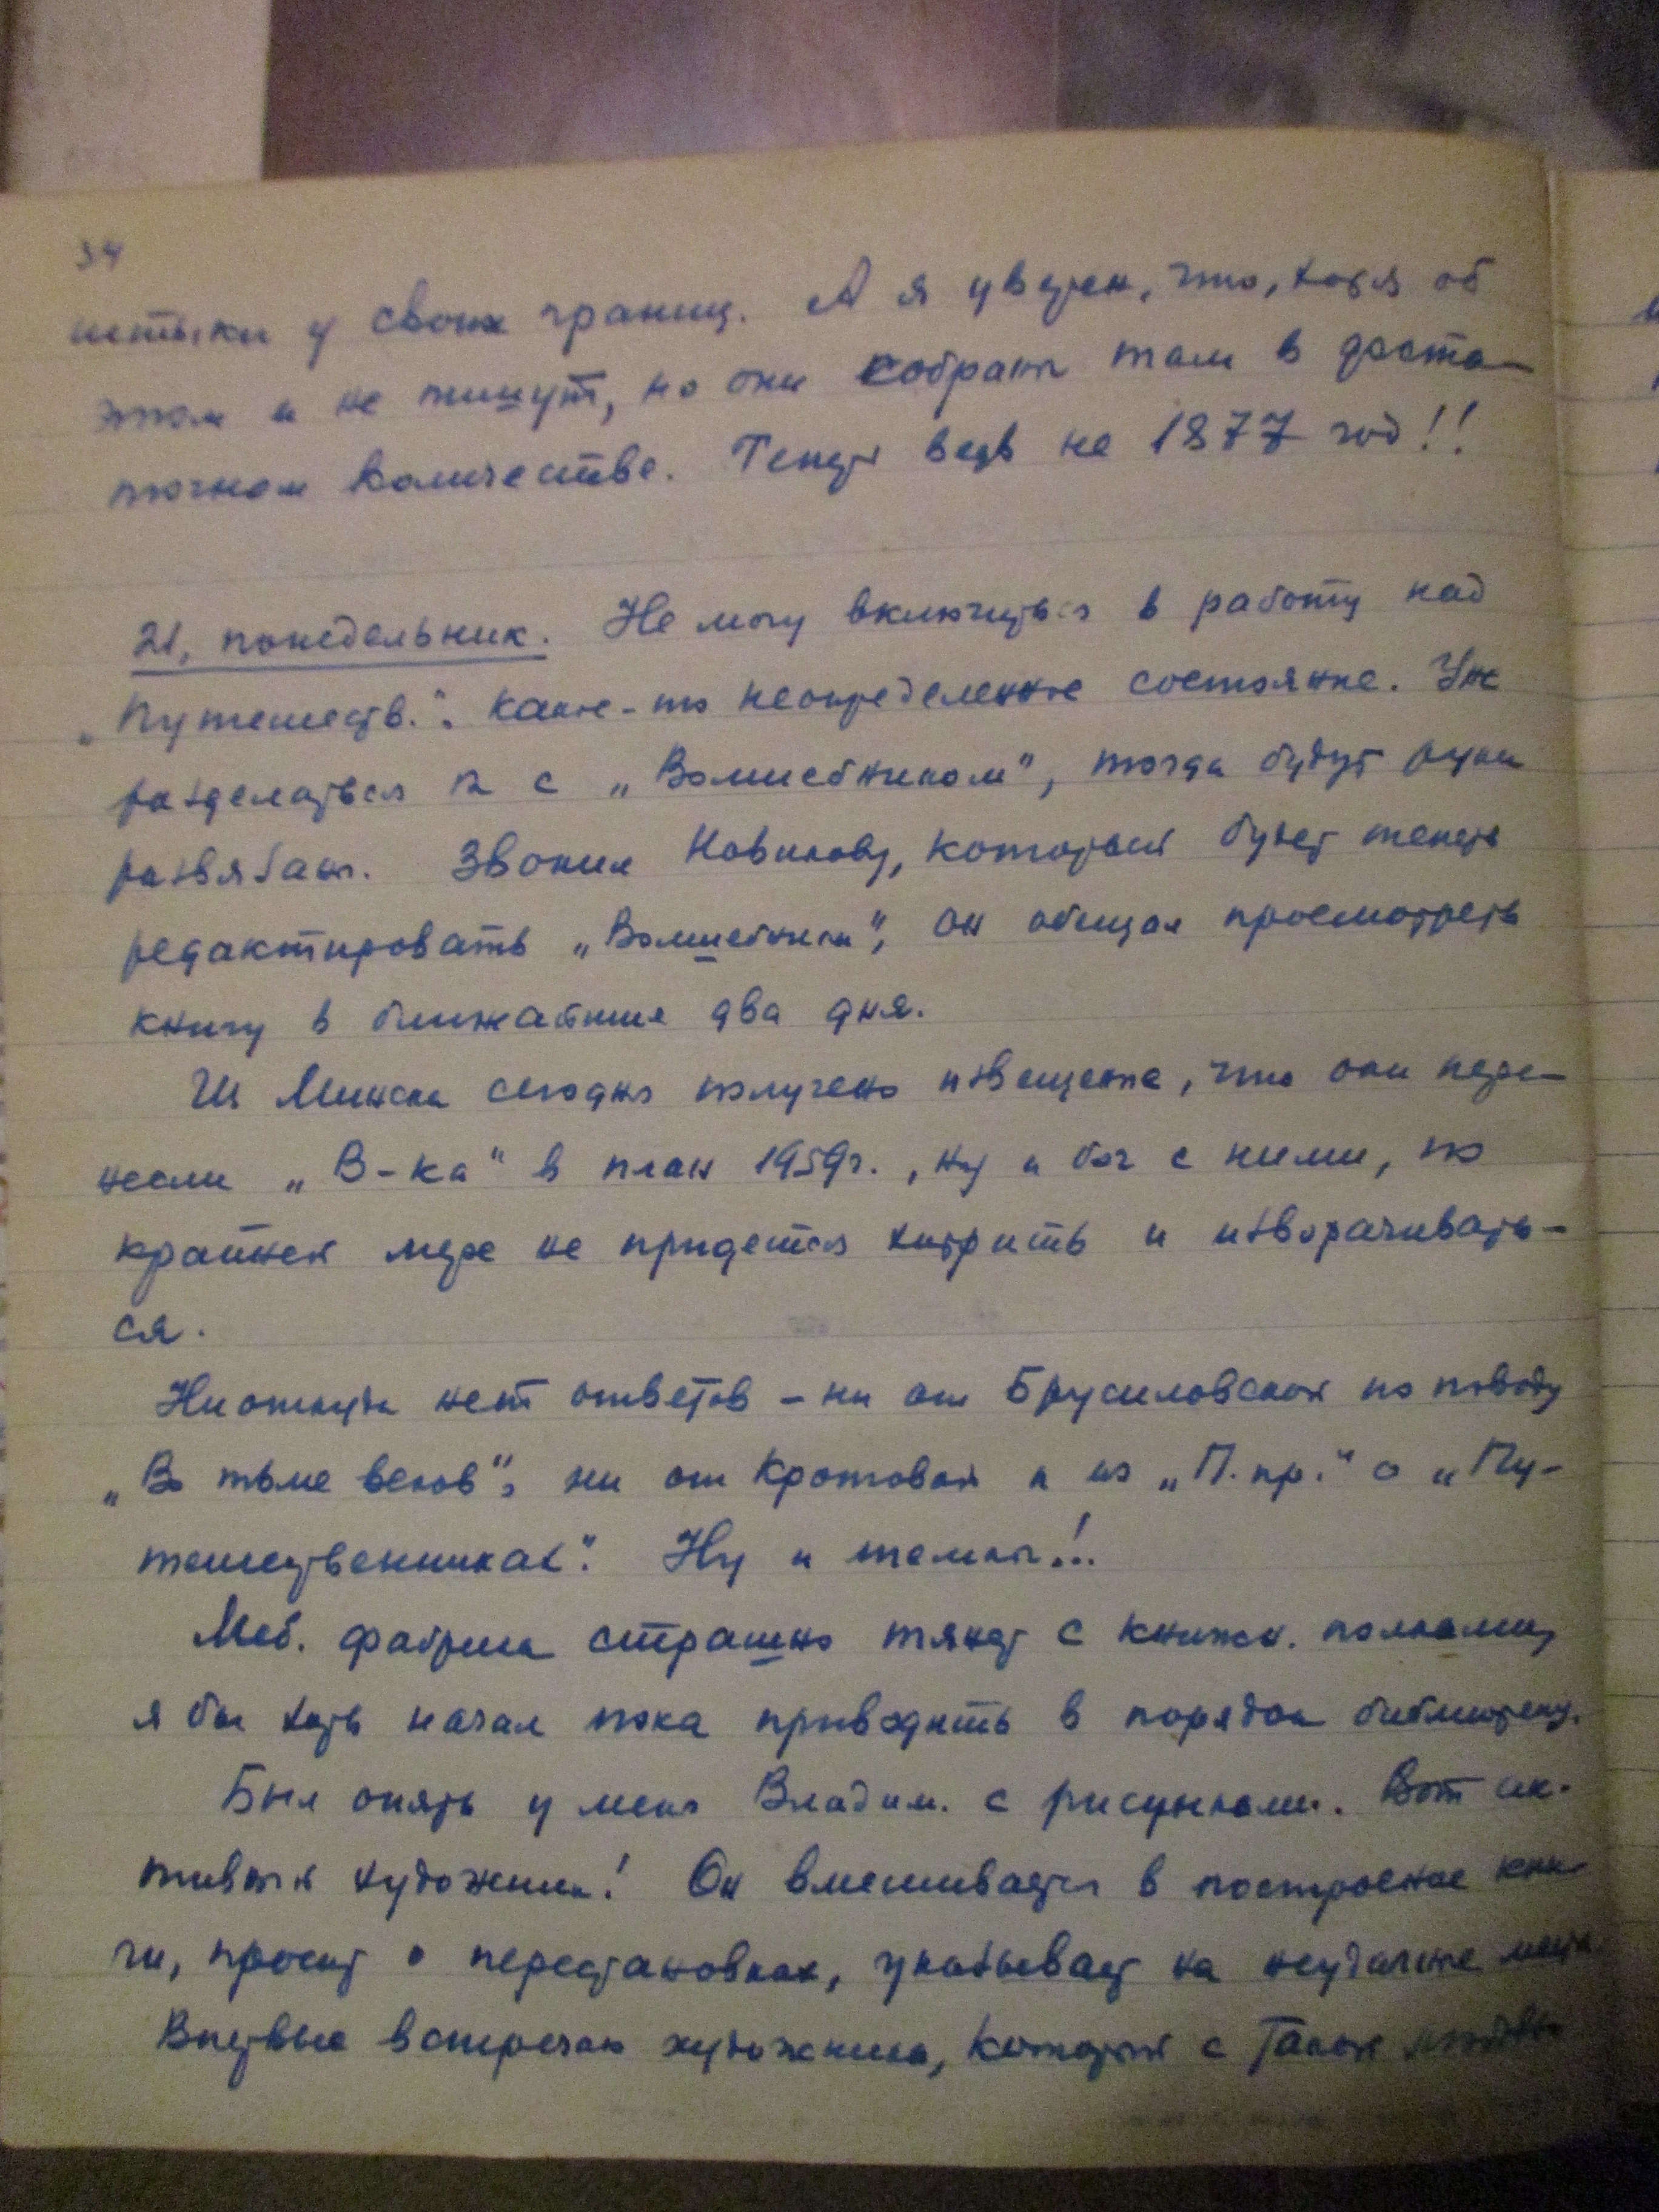 34
штыки у своих границ. А я уверен, что, хотя об
этом и не пишут, но они собраны там в доста-
точном количестве. Теперь ведь не 1877 год!!
21, понедельник. Не могу включиться в работу над
„Путешеств.". Какое-то неопределенное состояние. Уж
разделаться бы с „Волшебником", тогда будут руки
развязаны. Звонил Новикову, который будет теперь
редактировать „Волшебника", он обещал просмотреть
книгу в ближайшие два дня.
Из Минска сегодня получено извещение, что они пере-
несли „В-ка" в план 1959 г., ну и бог с ними, по
крайней мере не придется хитрить и изворачивать-
ся.
Ниоткуда нет ответов – ни от Брусиловской по поводу
„Во тьме веков", ни от Кротовой и из „П. пр." о „Пу-
тешественниках". Ну и темпы!..
Меб. фабрика страшно тянет с книжн. полками,
я бы хоть начал пока приводить в порядок библиотеку.
Был опять у меня Владим. с рисунками. Вот ак-
тивный художник! Он вмешивается в построение кни-
ги, просит о перестановках, указывает на неудачные места.
Впервые встречаю художника, который с такой